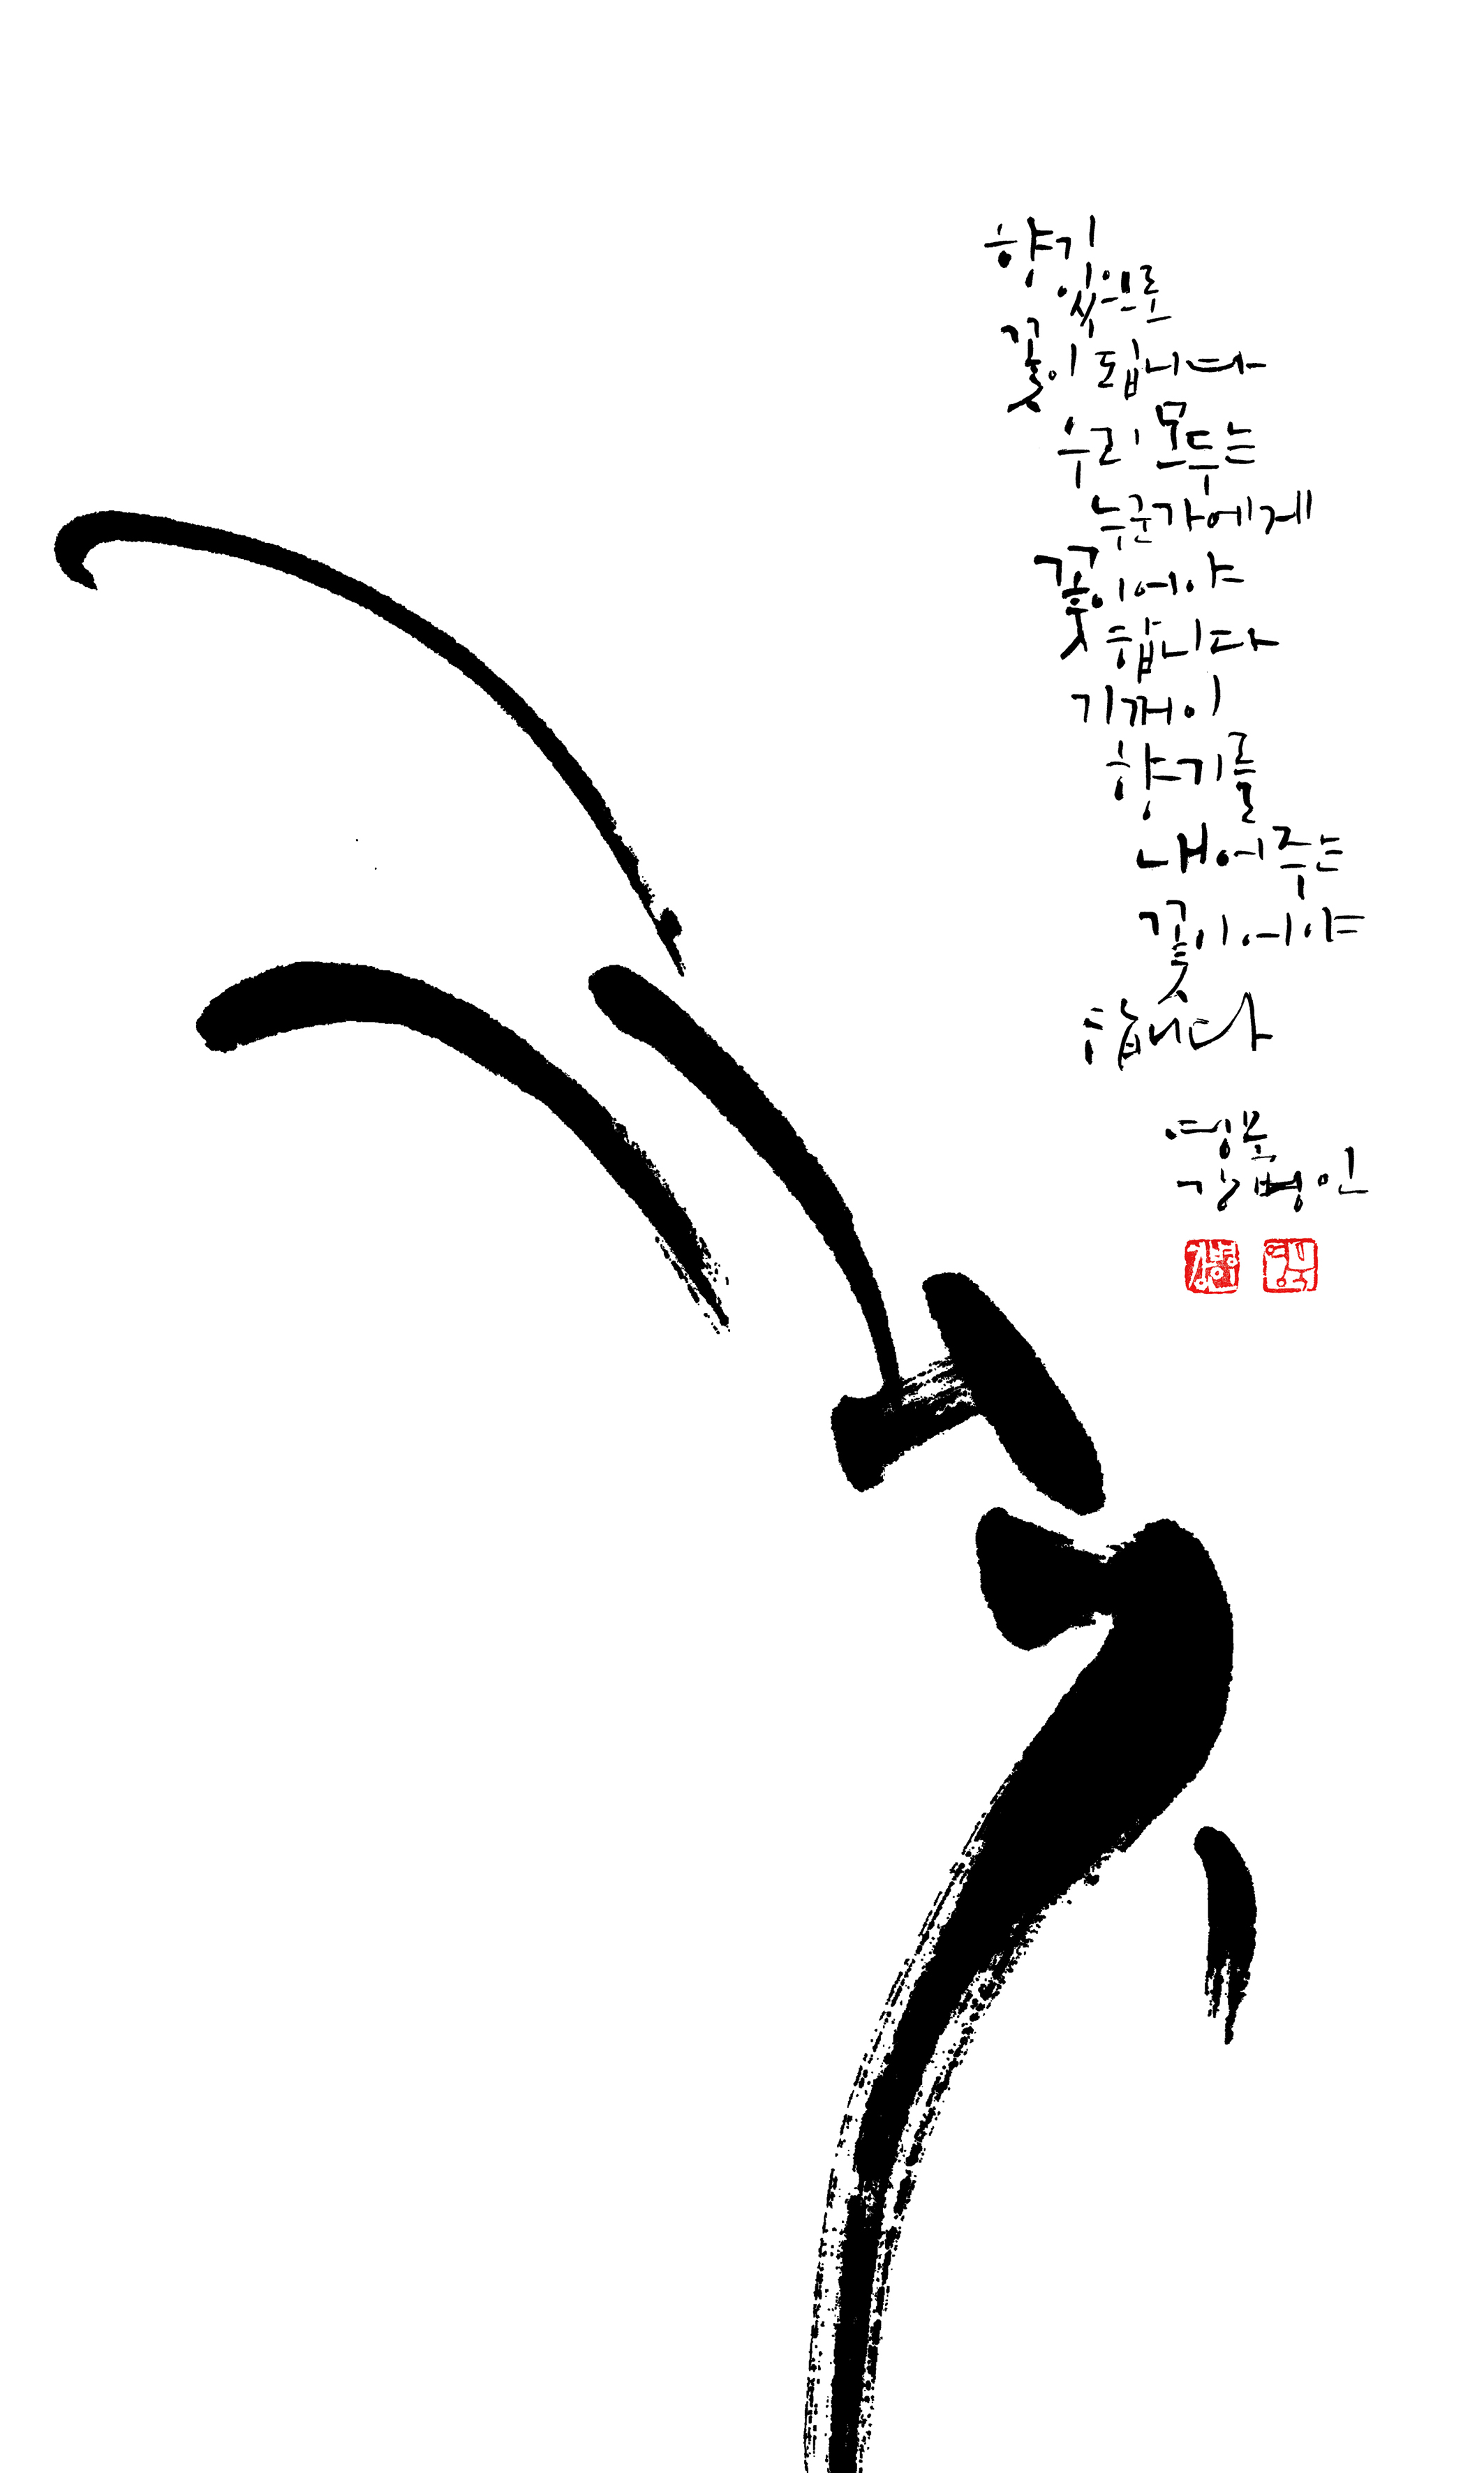 향기
있으로
꽃이 됩니다
우리 모두는
누군가에게
꽃이어야
합니다
기꺼이
향기를
내어주는
꽃이어야
합니다
영묵
강병인
꽃